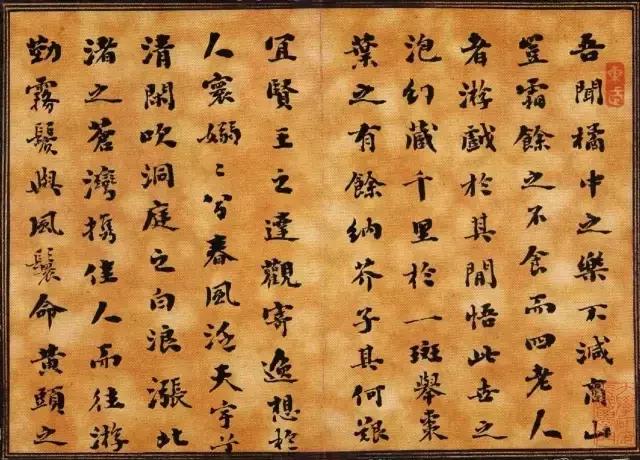 吾聞橘中之樂不減商山
豈霜餘之不食而四老人
者游戲於其間悟此世之
泡幻藏千里於一斑舉棗
葉之有餘納芥子其何艱
宜賢王之達觀寄逸想於
人寰嫋〻兮春風泛天宇兮
清閑吹洞庭之白浪漲北
渚之蒼灣携佳人而往游
勤霧鬢與風鬟命黄頭之